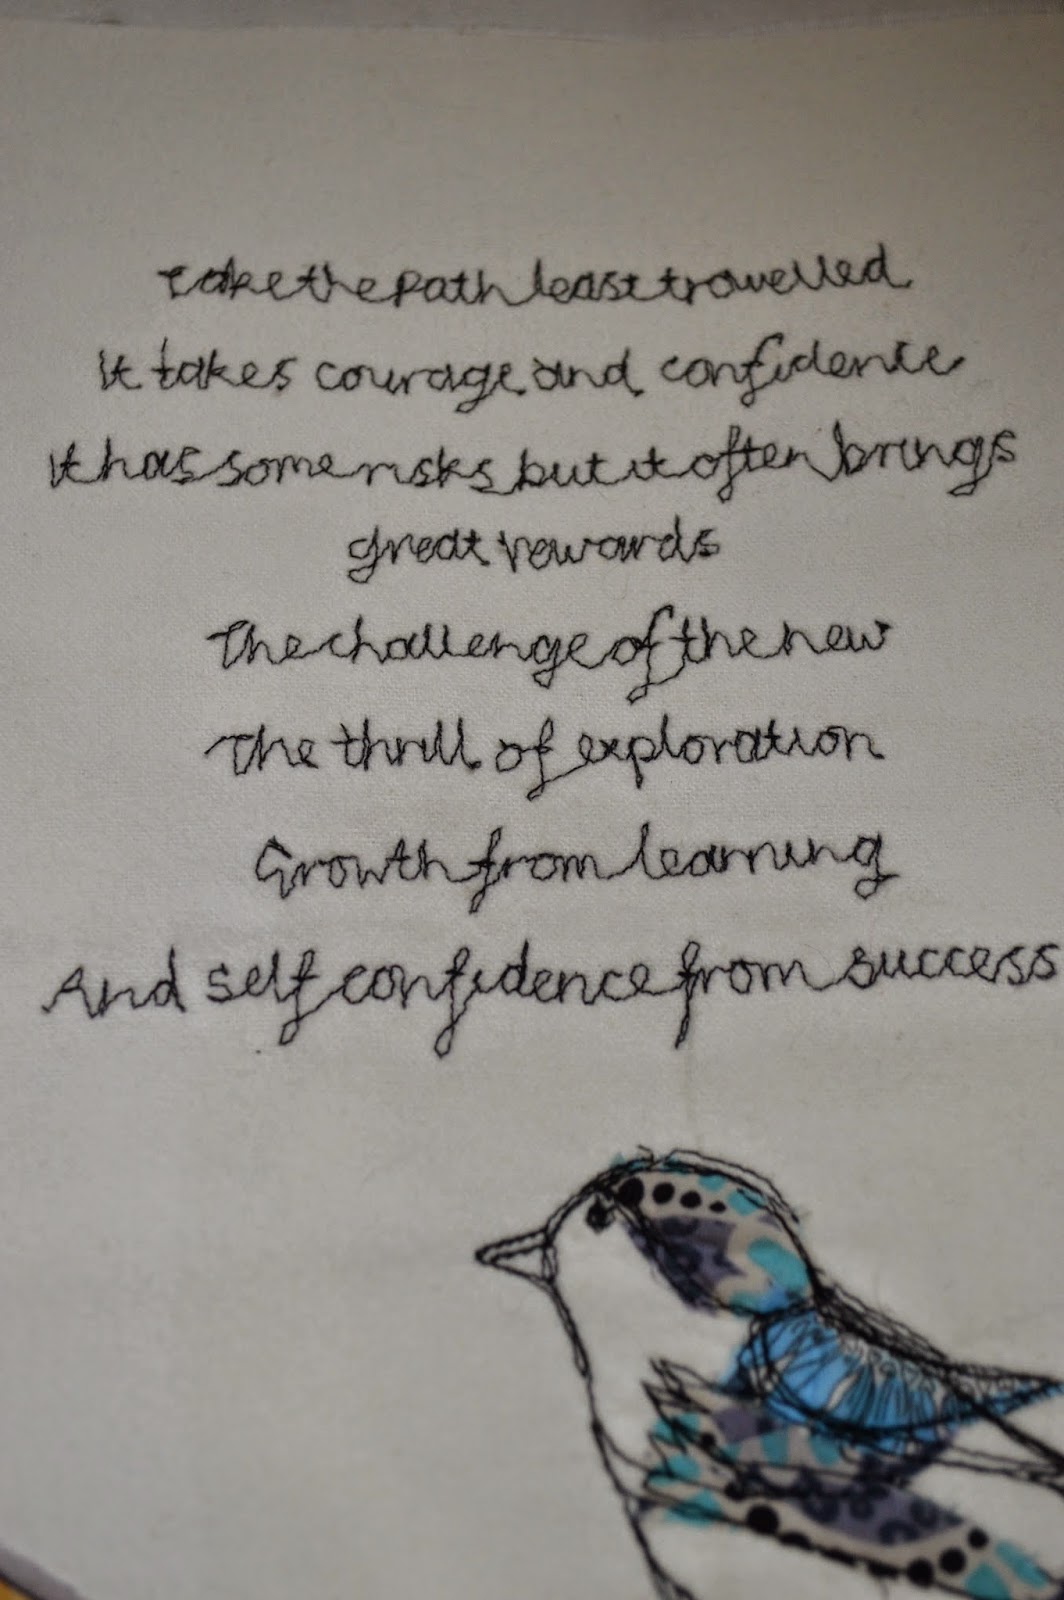 Take the path least travelled
It takes courage and confidence
It has some risks but it often brings
great rewards
The challenge of the new
The thrill of exploration
Growth from learning
And self confidence from success